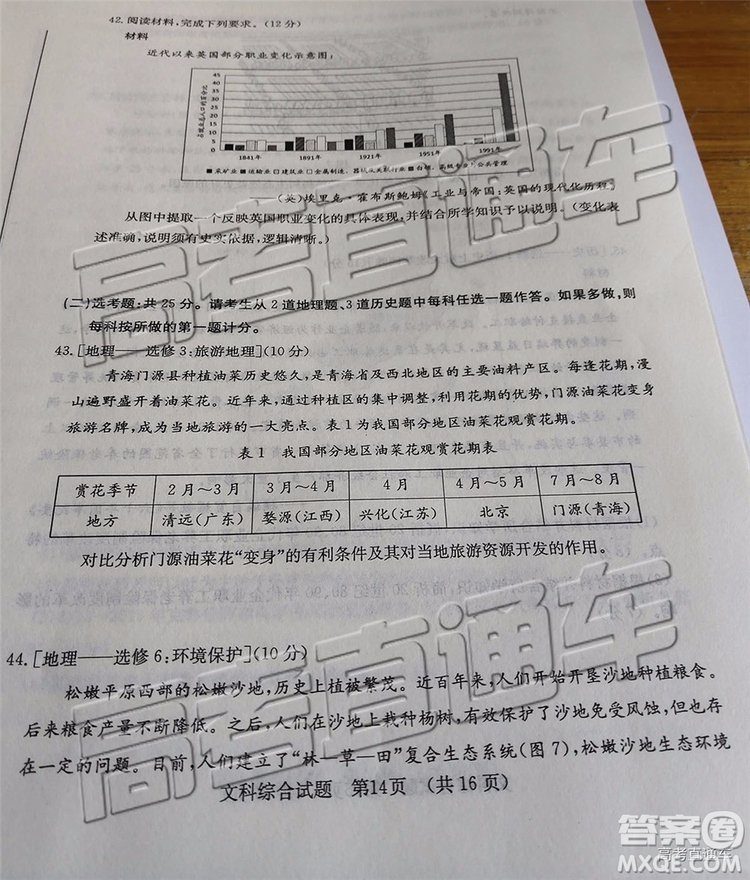 42. 阅读材料，完成下列要求。(12分)
材料
近代以来英国部分职业变化示意图：
45
40
35
30
25
20
15
10
5
0
1841年 1891年 1921年 1951年 1991年
■采矿业 ■运输业 □建筑业 □金属制造、 ■白领、高级专业、公共管理
(英)埃里克·霍布斯鲍姆《工业与帝国：英国的现代化历程》
从图中提取一个反映英国职业变化的具体表现，并结合所学知识予以说明。(变化表
述准确，说明须有史实依据，逻辑清晰。)
(二)选考题：共25分。请考生从2道地理题、3道历史题中每科任选一题作答。如果多做，则
每科按所做的第一题计分。
43. [地理——选修3：旅游地理](10分)
青海门源县种植油菜历史悠久，是青海省及西北地区的主要油料产区。每逢花期，漫
山遍野盛开着油菜花。近年来，通过种植区的集中调整，利用花期的优势，门源油菜花变身
旅游名牌，成为当地旅游的一大亮点。表1为我国部分地区油菜花观赏花期。
表1 我国部分地区油菜花观赏花期表
赏花季节 2月～3月 3月～4月 4月 4月～5月 7月～8月
地方 清远(广东) 婺源(江西) 兴化(江苏) 北京 门源(青海)
对比分析门源油菜花“变身”的有利条件及其对当地旅游资源开发的作用。
44. [地理——选修6：环境保护](10分)
松嫩平原西部的松嫩沙地，历史上植被繁茂。近百年来，人们开始开垦沙地种植粮食。
后来粮食产量不断降低。之后，人们在沙地上栽种杨树，有效保护了沙地免受风蚀，但又存
在一定的问题。目前，人们建立了“林—草—田”复合生态系统(图7)，松嫩沙地生态环境
文科综合试题 第14页 (共16页)
高考直通车
高考直通车
答案圈
高考直通车
MXQE.COM